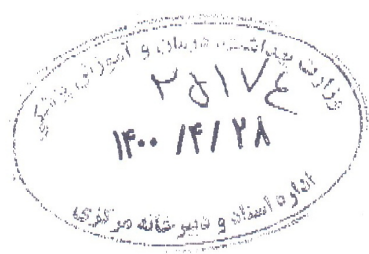 وزارت بهداشت، درمان و آموزش پزشکی
۱۴۰۰/۴/۲۸
اداره اسناد و دبیرخانه مرکزی